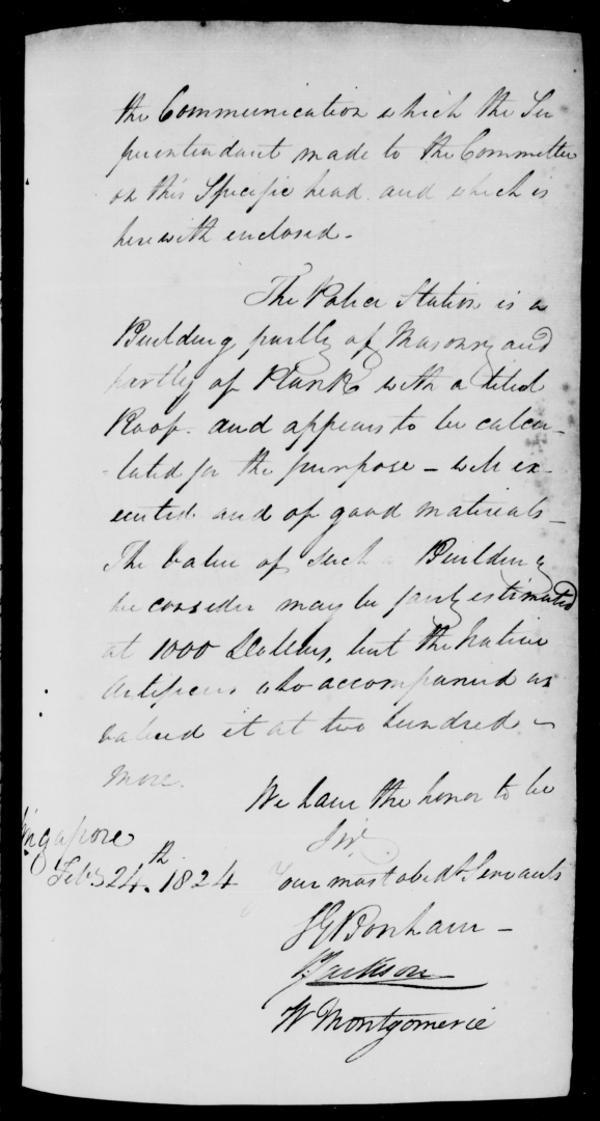 the Communication which the Su
perintendant made to the Committee
on this Specific head and which is
herewith enclosed -
The Police Station is a
Building partly of Masonry and
partly of Plank with a tiled
Roof. and appears to be calcu-
-lated for the purpose - well ex-
ecuted and of good materials -
The value of such a Building
we consider may be fairly estimated
at 1000 Dollars, but the Native
Artificers who accompanied us
valued it at two hundred
more.
We have the honor to be
Sir
Singapore
Feby 24th. 1824
Your most obedt Servants
SGBonham -
Jackson
W Montgomerie